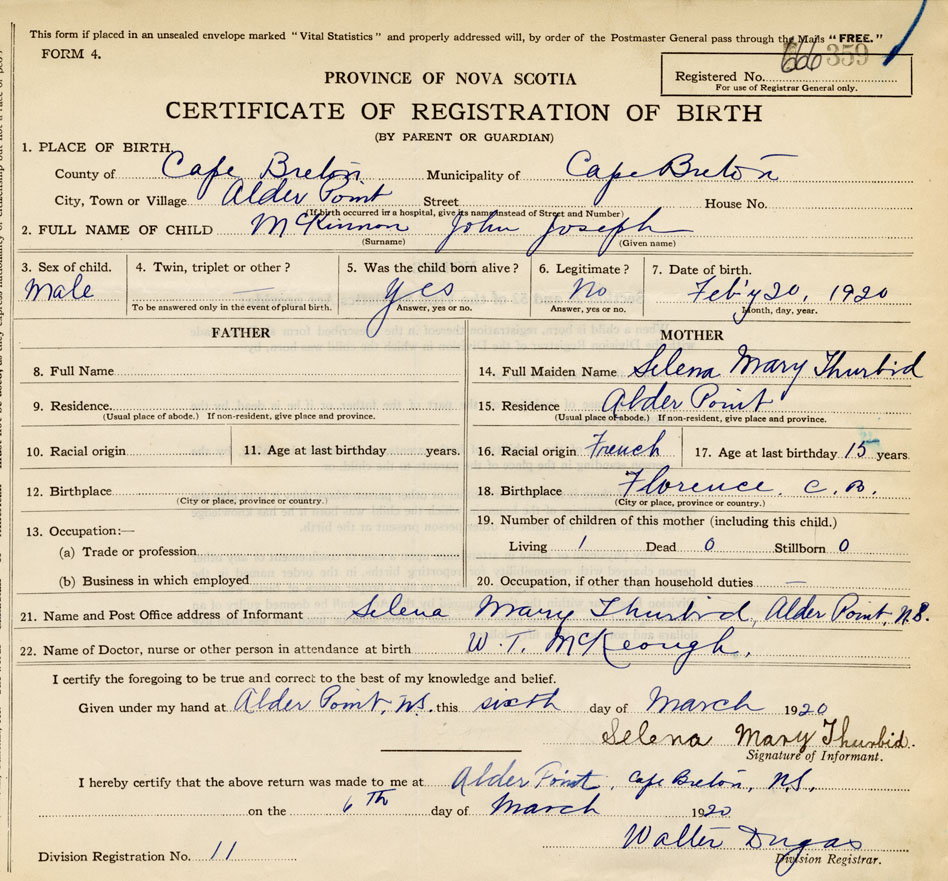 This form if placed in an unsealed envelope marked "Vital Statistics" and properly addressed will, by order of the Postmaster General pass through the Mails "FREE."
FORM 4.
666 359
PROVINCE OF NOVA SCOTIA
Registered No.
For use of Registrar General only.
CERTIFICATE OF REGISTRATION OF BIRTH
(BY PARENT OR GUARDIAN)
1. PLACE OF BIRTH.
County of Cape Breton Municipality of Cape Breton
City, Town or Village Alder Point Street House No.
(If birth occurred in a hospital, give its name instead of Street and Number)
2. FULL NAME OF CHILD McKinnon John Joseph
(Surname) (Given name)
3. Sex of child. 4. Twin, triplet or other? 5. Was the child born alive? 6. Legitimate? 7. Date of birth.
Male — Yes No Feb'y 20, 1920
To be answered only in the event of plural birth. Answer, yes or no. Answer, yes or no. Month, day, year.
FATHER MOTHER
8. Full Name 14. Full Maiden Name Selena Mary Thurbid
9. Residence. 15. Residence Alder Point
(Usual place of abode.) If non-resident, give place and province. (Usual place of abode.) If non-resident, give place and province.
10. Racial origin 11. Age at last birthday years. 16. Racial origin French 17. Age at last birthday 15 years.
12. Birthplace 18. Birthplace Florence. C. B.
(City or place, province or country.) (City or place, province or country.)
13. Occupation:— 19. Number of children of this mother (including this child.)
(a) Trade or profession Living 1 Dead 0 Stillborn 0
(b) Business in which employed 20. Occupation, if other than household duties —
21. Name and Post Office address of Informant Selena Mary Thurbid, Alder Point, N.S.
22. Name of Doctor, nurse or other person in attendance at birth W. T. McKeough.
I certify the foregoing to be true and correct to the best of my knowledge and belief.
Given under my hand at Alder Point, N.S. this sixth day of March 1920
Selena Mary Thurbid.
Signature of Informant.
I hereby certify that the above return was made to me at Alder Point, Cape Breton, N.S.,
on the 6th day of March 1920
Walter Dugas
Division Registrar.
Division Registration No. 11